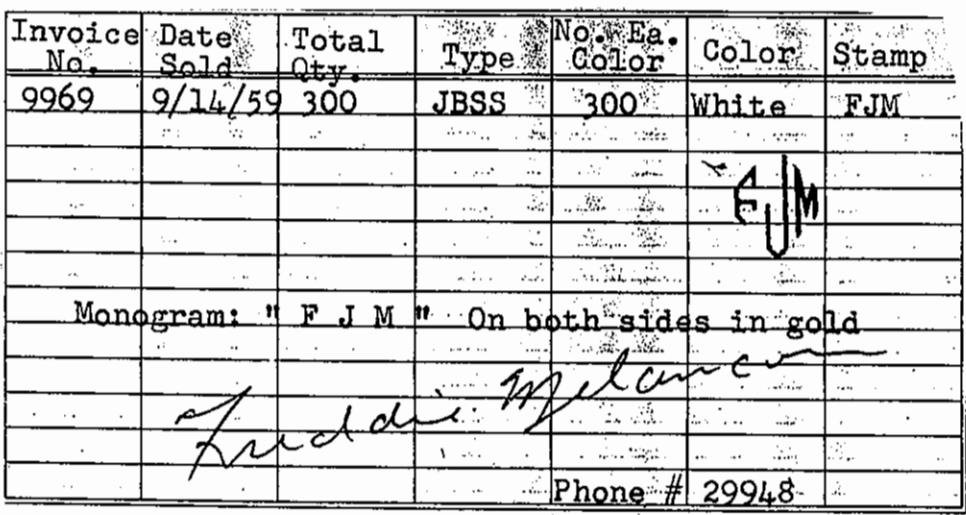 Invoice No. Date Sold Total Qty. Type No. Ea. Color Color Stamp
9969 9/14/59 300 JBSS 300 White FJM
FJM
Monogram: " F J M " On both sides in gold
Freddie Melancon
Phone # 29948